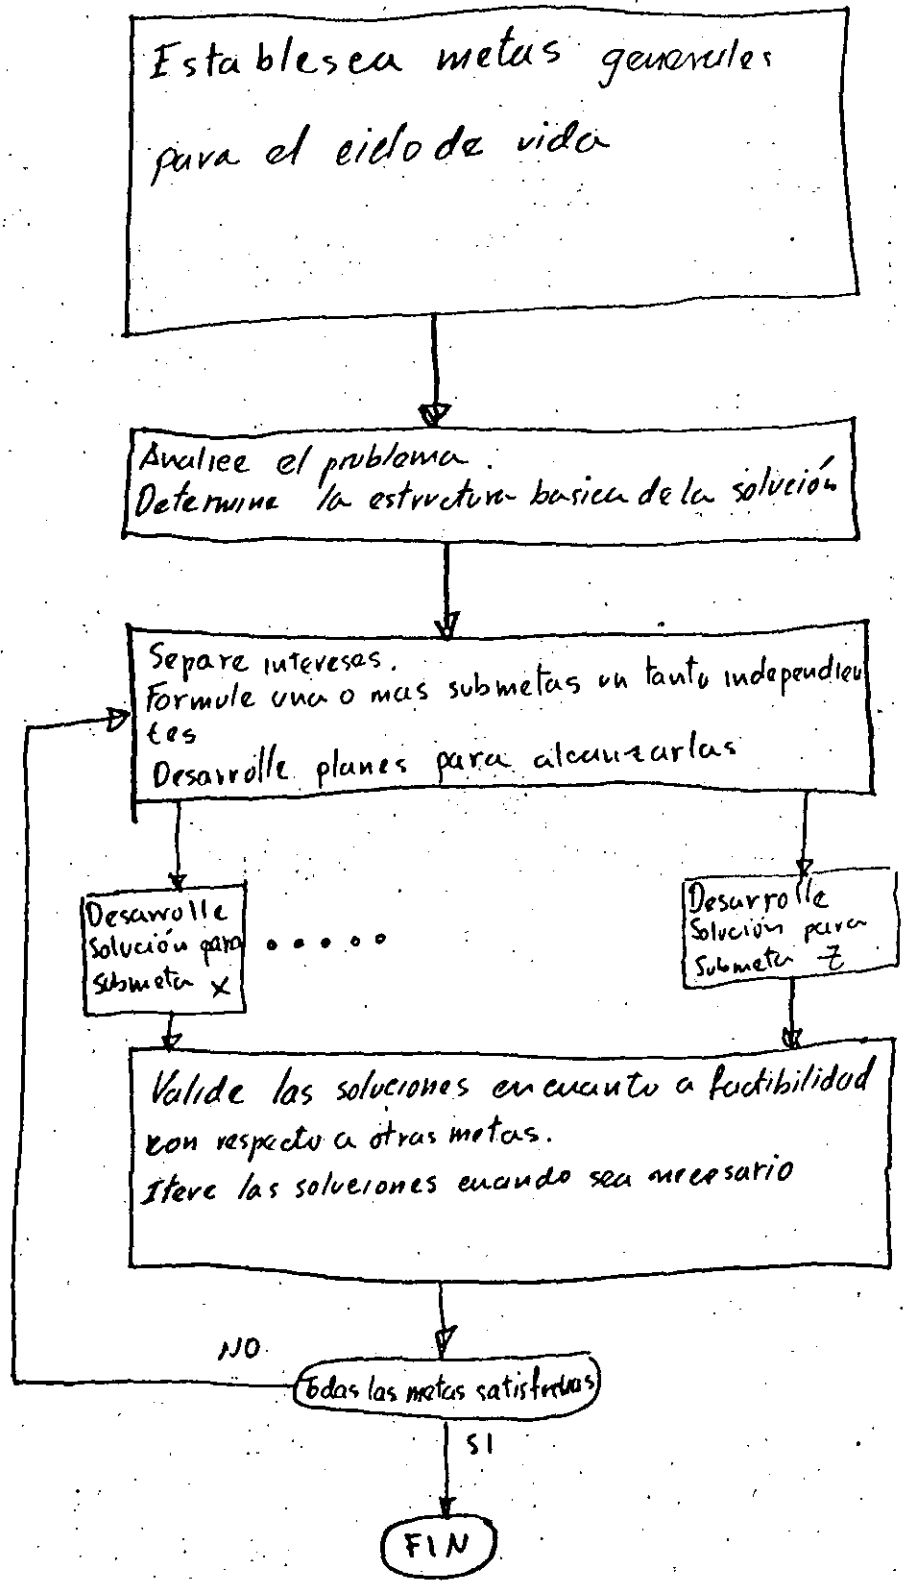 Establesca metas generales
para el ciclo de vida
Analice el problema.
Determine la estructura basica de la solución
Separe intereses.
Formule una o mas submetas un tanto independien
tes
Desarrolle planes para alcanzarlas
Desarrolle
solución para
submeta x
Desarrolle
Solución para
Submeta Z
Valide las soluciones en cuanto a factibilidad
con respecto a otras metas.
Itere las soluciones cuando sea necesario
NO
todas las metas satisfechas
SI
FIN